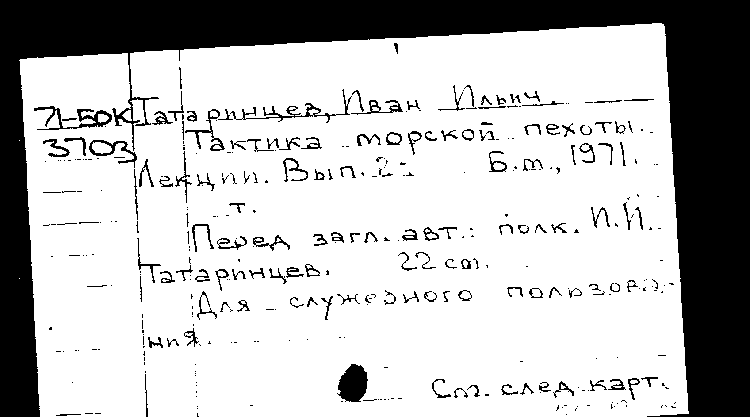 71-БОК Татаринцев, Иван Ильич.
3703 Тактика морской пехоты.
Лекции. Вып. 2- Б.м., 1971.
т.
Перед загл. авт.: полк. И.И.
Татаринцев. 22 cm.
Для служебного пользова-
ния.
См. след. карт.